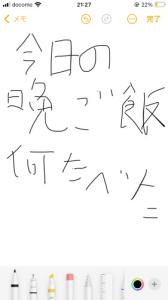 docomo 21:27 22%
メモ 完了
今日の
晩ご飯
何たべた